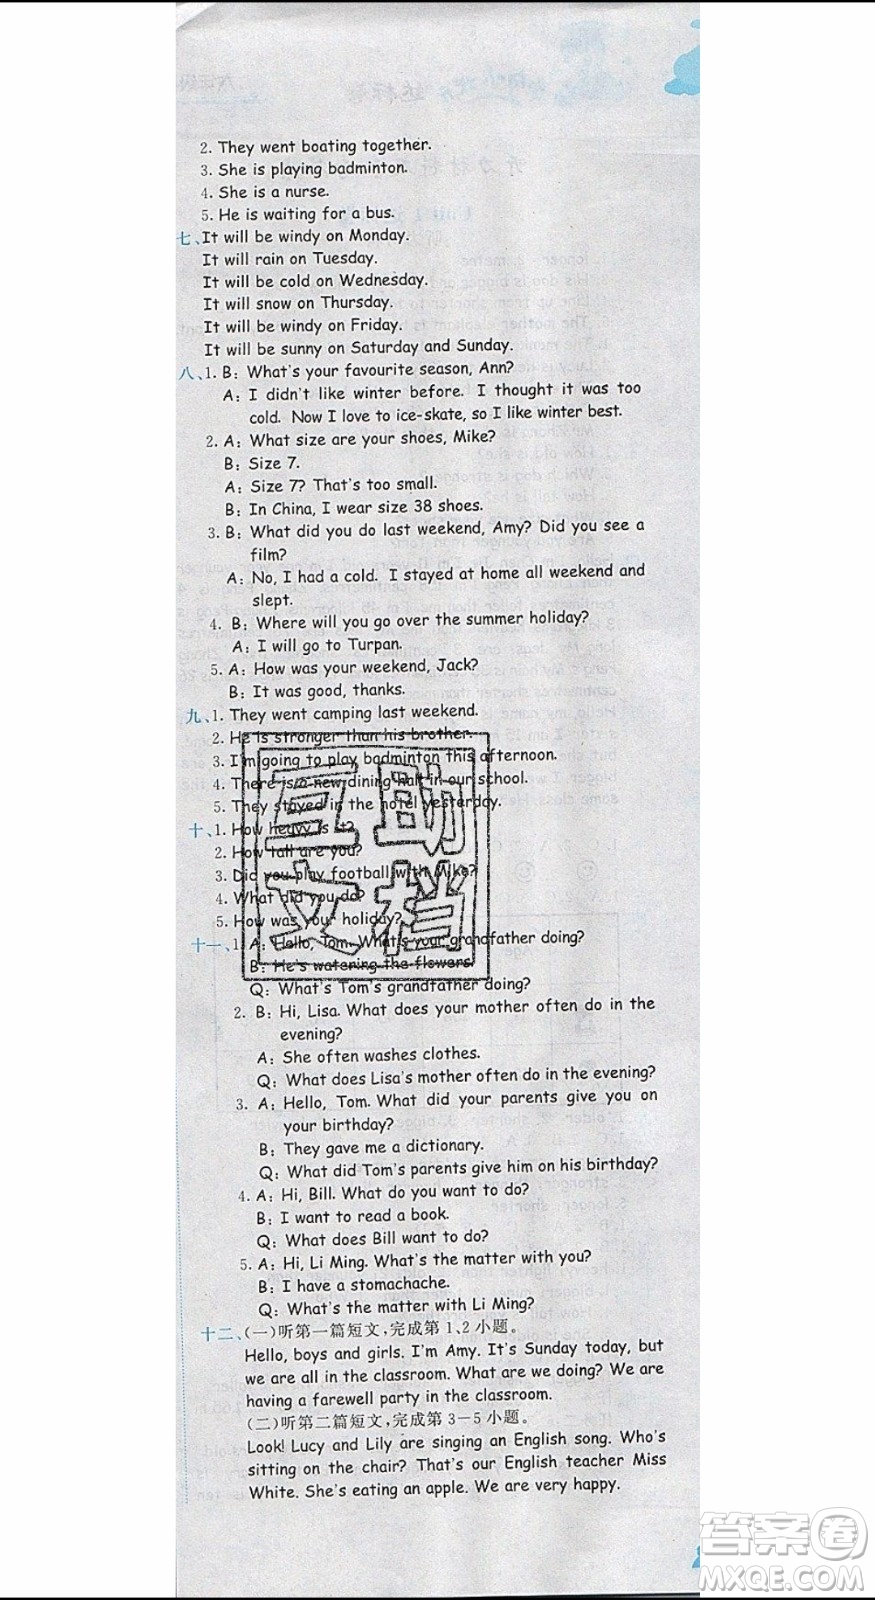 2. They went boating together.
3. She is playing badminton.
4. She is a nurse.
5. He is waiting for a bus.
七、It will be windy on Monday.
It will rain on Tuesday.
It will be cold on Wednesday.
It will snow on Thursday.
It will be windy on Friday.
It will be sunny on Saturday and Sunday.
八、1. B: What's your favourite season, Ann?
A: I didn't like winter before. I thought it was too
cold. Now I love to ice-skate, so I like winter best.
2. A: What size are your shoes, Mike?
B: Size 7.
A: Size 7? That's too small.
B: In China, I wear size 38 shoes.
3. B: What did you do last weekend, Amy? Did you see a
film?
A: No, I had a cold. I stayed at home all weekend and
slept.
4. B: Where will you go over the summer holiday?
A: I will go to Turpan.
5. A: How was your weekend, Jack?
B: It was good, thanks.
九、1. They went camping last weekend.
2. He is stronger than his brother.
3. I'm going to play badminton this afternoon.
4. There is a new dining hall in our school.
5. They stayed in the hotel yesterday.
十、1. How heavy is it?
2. How tall are you?
3. Did you play football with Mike?
4. What did you do?
5. How was your holiday?
互助
文档
十一、1. A: Hello, Tom. What's your grandfather doing?
B: He's watering the flowers.
Q: What's Tom's grandfather doing?
2. B: Hi, Lisa. What does your mother often do in the
evening?
A: She often washes clothes.
Q: What does Lisa's mother often do in the evening?
3. A: Hello, Tom. What did your parents give you on
your birthday?
B: They gave me a dictionary.
Q: What did Tom's parents give him on his birthday?
4. A: Hi, Bill. What do you want to do?
B: I want to read a book.
Q: What does Bill want to do?
5. A: Hi, Li Ming. What's the matter with you?
B: I have a stomachache.
Q: What's the matter with Li Ming?
十二、(一)听第一篇短文,完成第1、2小题。
Hello, boys and girls. I'm Amy. It's Sunday today, but
we are all in the classroom. What are we doing? We are
having a farewell party in the classroom.
(二)听第二篇短文,完成第3-5小题。
Look! Lucy and Lily are singing an English song. Who's
sitting on the chair? That's our English teacher Miss
White. She's eating an apple. We are very happy.
答案圈
MXQE.COM